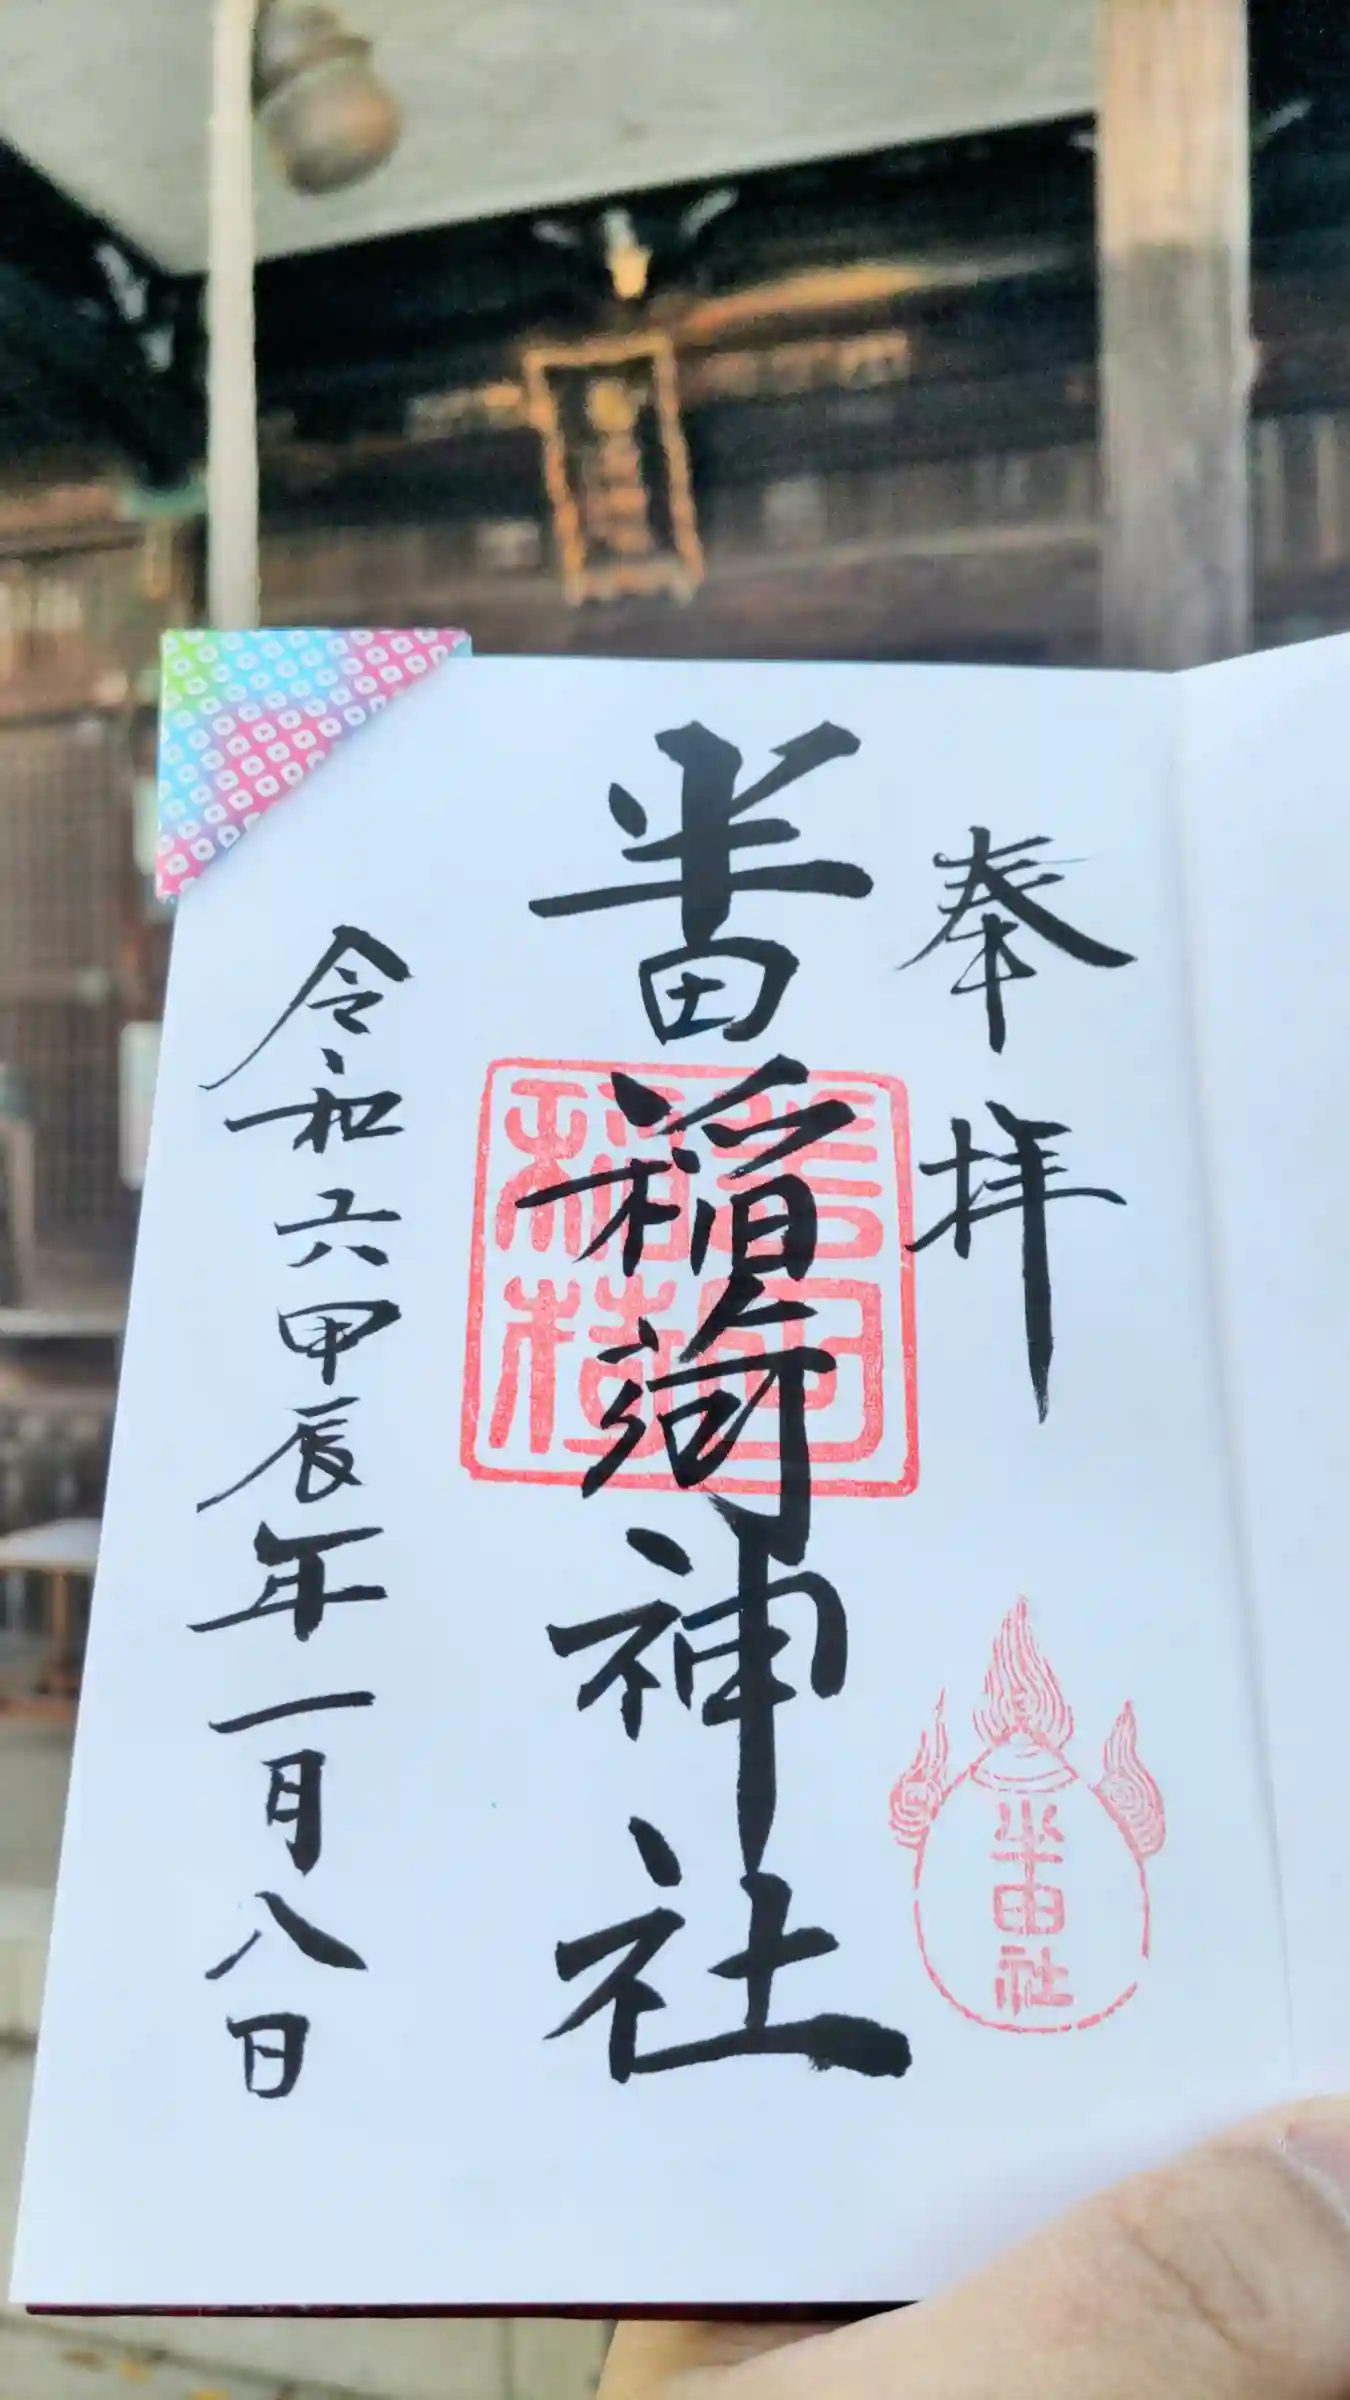 奉拝
半田稲荷神社
半田
稲荷
半田社
令和六甲辰年一月八日